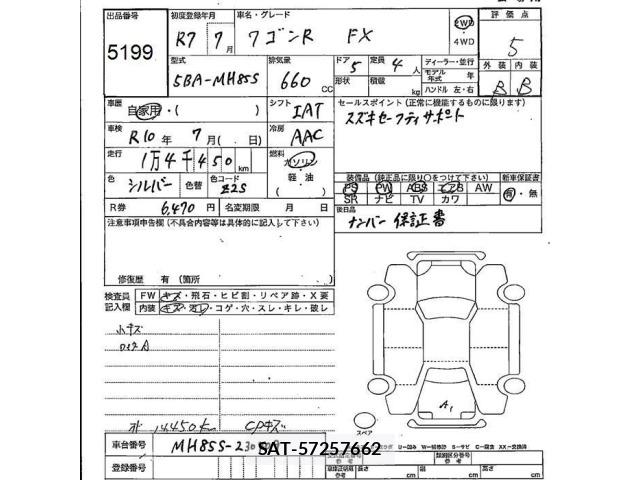 出品番号 初度登録年月 車名・グレード 2WD 評価点
5199 R7年 7月 ワゴンR FX 4WD 5
型式 排気量 ドア 定員 ディーラー・並行 外装 内装
5BA-MH85S 660 CC 5 4人 モデル年式 年 B B
形状 積載 kg ハンドル 左・右
車歴 自家用・( ) シフト IAT セールスポイント(正常に機能するものに限ります)
車検 R10年 7月( . 日) 冷房 AAC スズキセーフティサポート
走行 1万4千450km 燃料 ガソリン
軽油
( )
色 シルバー 色替 色コード Z2S 装備品(純正品に限り○をつけて下さい) 新車保証書
PS PW ABS エアB AW 有・無
SR ナビ TV カワ
R券 6,470円 名変期限 月 日 後日品
注意事項申告欄(不具合内容等は具体的に記入して下さい) ナンバー 保証書
修復歴 有(箇所 )
検査員 FW キズ・飛石・ヒビ割・リペア跡・X要
記入欄 内装 キズ・ヨゴレ・コゲ・穴・スレ・キレ・破レ
小キズ
A1
14,450k CPキズ
スペア
車台番号 MH85S-230
SAT-57257662
登録番号 長さ cm 幅 cm 高さ cm